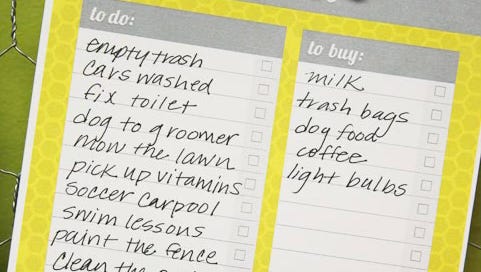 to do:
empty trash
cars washed
fix toilet
dog to groomer
mow the lawn
pick up vitamins
soccer carpool
swim lessons
paint the fence
clean the
to buy:
milk
trash bags
dog food
coffee
light bulbs